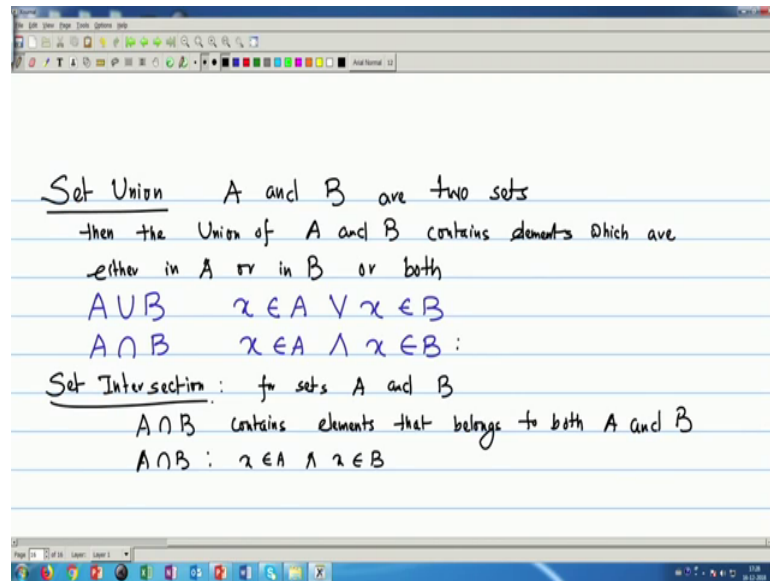 Journal
File Edit View Page Tools Options Help
Arial Normal 12
Set Union A and B are two sets
then the Union of A and B contains elements which are
either in A or in B or both
A∪B x∈A ∨ x∈B
A∩B x∈A ∧ x∈B :
Set Intersection : for sets A and B
A∩B contains elements that belongs to both A and B
A∩B : x∈A ∧ x∈B
Page 16 of 16 Layer: Layer 1